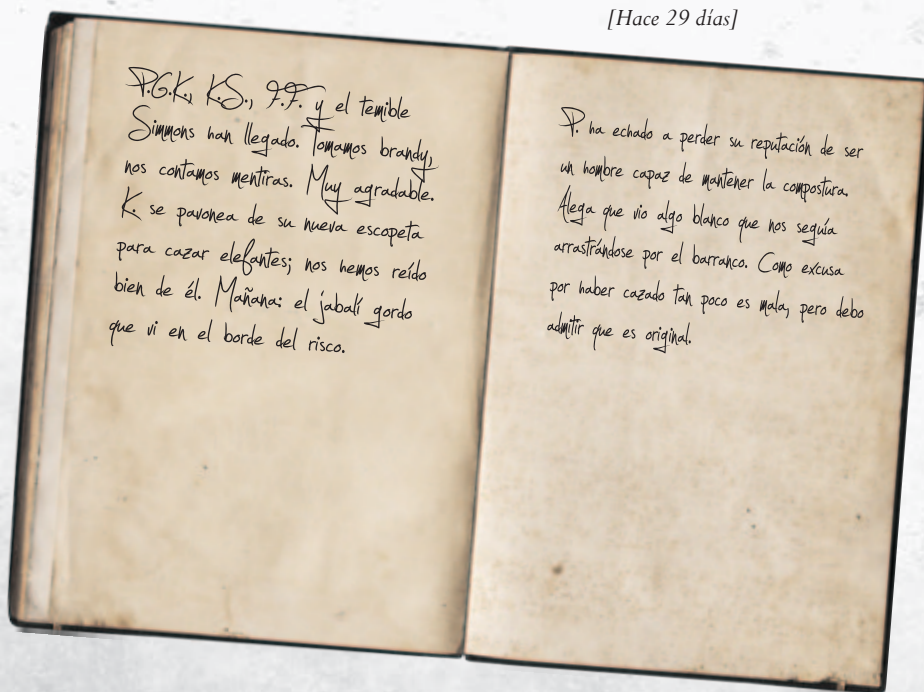 [Hace 29 días]
P.G.K., K.S., F.F. y el temible
Simmons han llegado. Tomamos brandy,
nos contamos mentiras. Muy agradable.
K. se pavonea de su nueva escopeta
para cazar elefantes; nos hemos reído
bien de él. Mañana: el jabalí gordo
que vi en el borde del risco.
P. ha echado a perder su reputación de ser
un hombre capaz de mantener la compostura.
Alega que vio algo blanco que nos seguía
arrastrándose por el barranco. Como excusa
por haber cazado tan poco es mala, pero debo
admitir que es original.